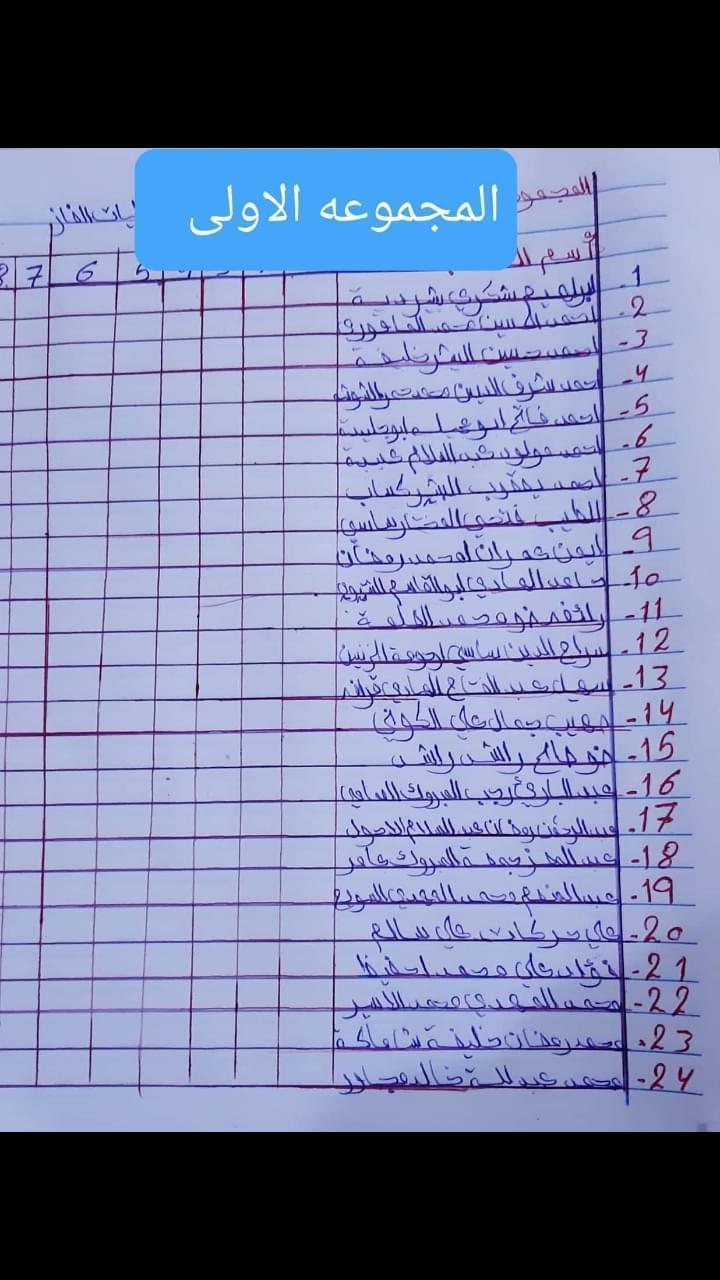 المجموعه الاولى
المجمو
يات الغاز
أسم ال
5 6 7 8
1- ابراهيم شكري شريدية
2- احمد الحسين محمد
3- احمد حسين البشر خليفة
4- احمد شرف الدين محمد
5- احمد فاتح
6- احمد مولود عبد السلام عبية
7- احمد يعقوب البشير كساب
8- الطيب فتحي المختار ساسي
9- ايمن عمران امحمد رمضان
10- حامد الهادي ابوالقاسم
11- رائف ضو محمد
12- سراج الدين ساسي اجمعة
13- عبد الفتاح الهادي
14- مهيب جمال علي الكوني
15- ضو صالح راشد راشد
16- عبد الباري رجب المبروك الساعدي
17- عبد الرحمن رمضان عبد السلام الاحول
18- عبد المعز جمعة المبروك عامر
19- عبد المنعم محمد المهدي
20- علي بركات علي سالم
21- فؤاد علي محمد احفيظ
22- محمد المهدي محمد الأسير
23- محمد رمضان خليفة
24- محمد عبد الله خالد مجاور